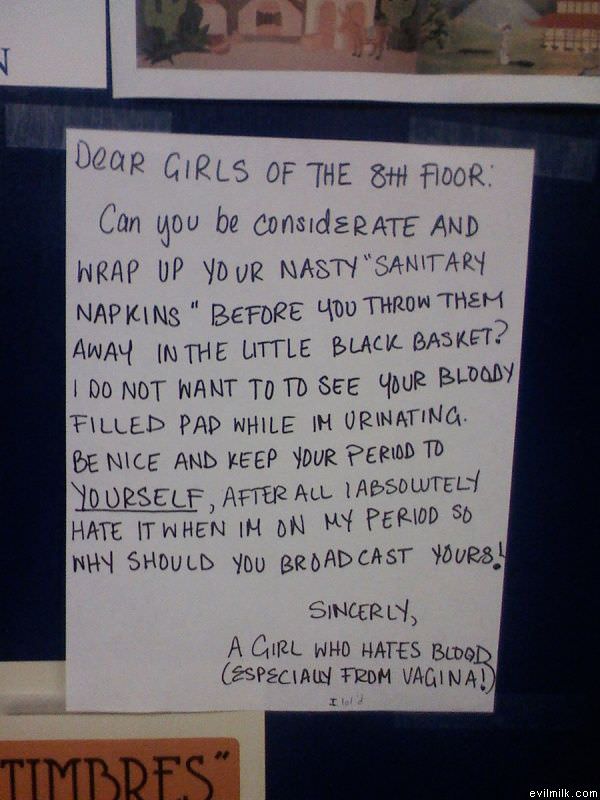 N
DEAR GIRLS OF THE 8TH FLOOR:
Can you be considERATE AND
WRAP UP YOUR NASTY "SANITARY
NAPKINS" BEFORE YOU THROW THEM
AWAY IN THE LITTLE BLACK BASKET?
I DO NOT WANT TO TO SEE YOUR BLOODY
FILLED PAD WHILE IM URINATING.
BE NICE AND KEEP YOUR PERIOD TO
YOURSELF, AFTER ALL I ABSOLUTELY
HATE IT WHEN IM ON MY PERIOD SO
WHY SHOULD YOU BROADCAST YOURS!
SINCERLY,
A GIRL WHO HATES BLOOD
(ESPECIALLY FROM VAGINA!)
I lol'd
TIMBRES"
evilmilk.com